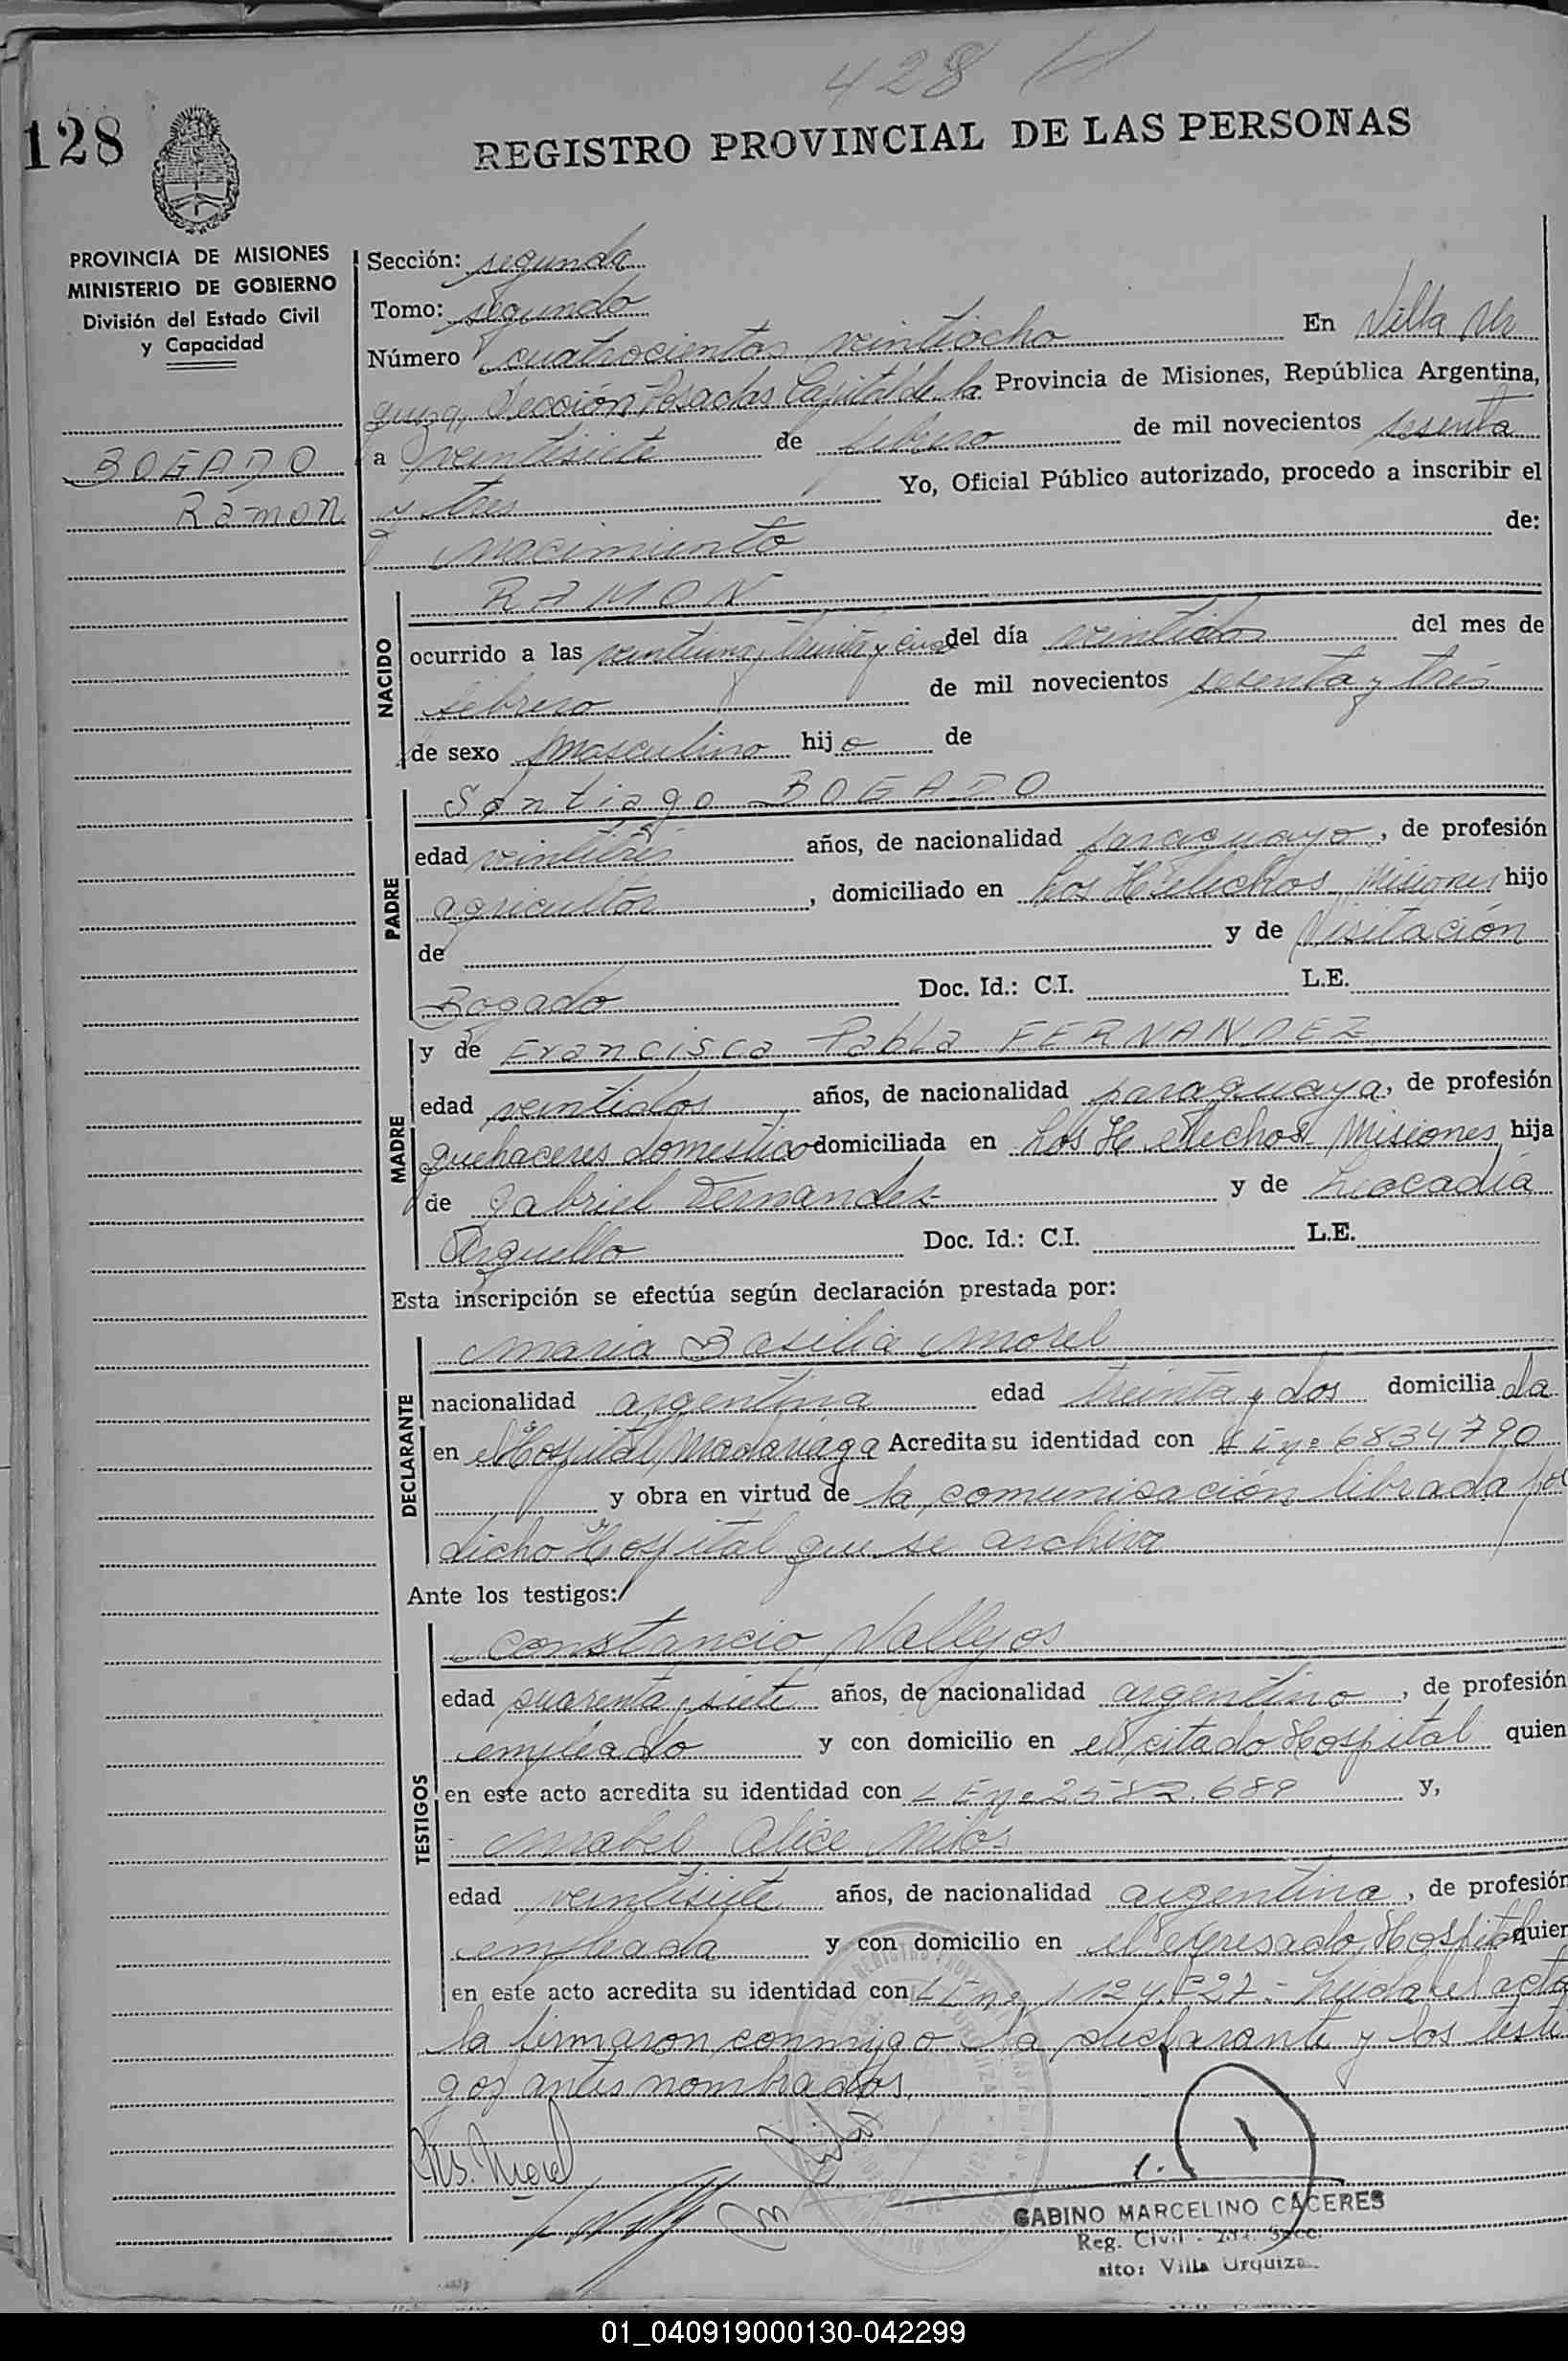 428
128
REGISTRO PROVINCIAL DE LAS PERSONAS
PROVINCIA DE MISIONES
MINISTERIO DE GOBIERNO
División del Estado Civil
y Capacidad
BOGADO
Ramon
Sección: segunda
Tomo: segundo
Número cuatrocientos veintiocho En Villa Ur
quiza, Sección Posadas Capital de la Provincia de Misiones, República Argentina,
a veintisiete de febrero de mil novecientos sesenta
y tres Yo, Oficial Público autorizado, procedo a inscribir el
nacimiento de:
NACIDO
RAMON
ocurrido a las veintiuna, treinta y cinco del día veintidos del mes de
febrero de mil novecientos sesenta y tres
de sexo masculino hijo de
PADRE
Santiago BOGADO
edad veintitres años, de nacionalidad paraguayo, de profesión
agricultor, domiciliado en Los Helechos Misiones hijo
de y de Visitación
Bogado Doc. Id.: C.I. L.E.
MADRE
y de Francisca Pabla FERNANDEZ
edad veintidos años, de nacionalidad paraguaya, de profesión
quehaceres domestico domiciliada en Los Helechos Misiones, hija
de Gabriel Fernandez y de Leocadia
Arguello Doc. Id.: C.I. L.E.
Esta inscripción se efectúa según declaración prestada por:
DECLARANTE
Maria Basilia Morel
nacionalidad argentina edad treinta y dos domiciliada
en el Hospital Madariaga Acredita su identidad con L E nº 6834790
y obra en virtud de la comunicación librada por
dicho Hospital que se archiva
Ante los testigos:
TESTIGOS
Constancio Vallejos
edad cuarenta y siete años, de nacionalidad argentino, de profesión
empleado y con domicilio en el citado Hospital quien
en este acto acredita su identidad con L E nº 2582.689 y,
Mabel Alice
edad veintisiete años, de nacionalidad argentina, de profesión
empleada y con domicilio en el expresado Hospital quien
en este acto acredita su identidad con L E nº Leida el acta
la firmaron conmigo la declarante y los testi
gos antes nombrados.
M.B. Morel
GABINO MARCELINO CACERES
Reg. Civil - 2da. Secc.
sito: Villa Urquiza
01_040919000130-042299